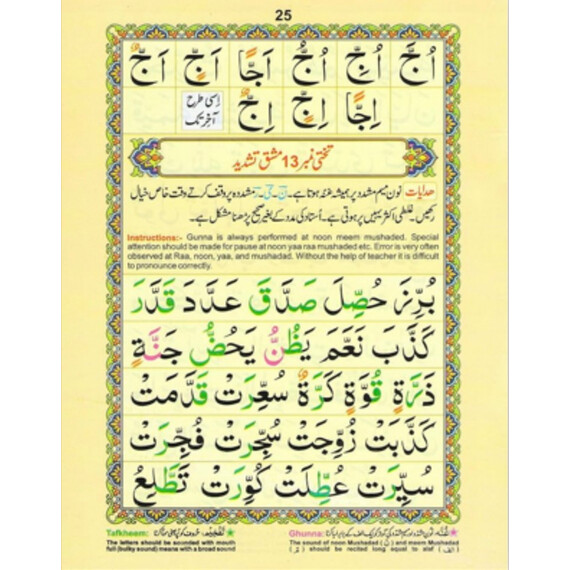 25
اُجَّ اُجِّ اُجُّ اَجًّا اَجٍّ اَجٌّ
اِجًّا اِجٍّ اِجٌّ اِسی طرح آخر تک
تختی نمبر 13 مشق تشدید
ھدایات نون میم مشدد پر ہمیشہ غنہ ہوتا ہے۔ نّ۔یّ۔رّ مشددہ پر وقف کرتے وقت خاص خیال
رکھیں۔ غلطی اکثر یہیں پر ہوتی ہے۔ اُستاد کی مدد کے بغیر صحیح پڑھنا مشکل ہے۔
Instructions:- Gunna is always performed at noon meem mushaded. Special
attention should be made for pause at noon yaa raa mushaded etc. Error is very often
observed at Raa, noon, yaa, and mushadad. Without the help of teacher it is difficult
to pronounce correctly.
بُرِّزَ حُصِّلَ صَدَّقَ عَدَّدَ قَدَّرَ
كَذَّبَ نَعَّمَ يَظُنُّ يَحُضُّ جَنَّةٍ
ذَرَّةٍ قُوَّةٍ كَرَّةٌ سُعِّرَتْ قَدَّمَتْ
كَذَّبَتْ زُوِّجَتْ سُجِّرَتْ فُجِّرَتْ
سُيِّرَتْ عُطِّلَتْ كُوِّرَتْ تَطَّلِعُ
Tafkheem: تَفْخِیْم:
The letters should be sounded with mouth
full (bulky sound) means with a broad sound
Ghunna: غُنَّہ:
The sound of noon Mushadad (نّ) and meem Mushadad
(مّ) should be recited long equal to alaf (الف)